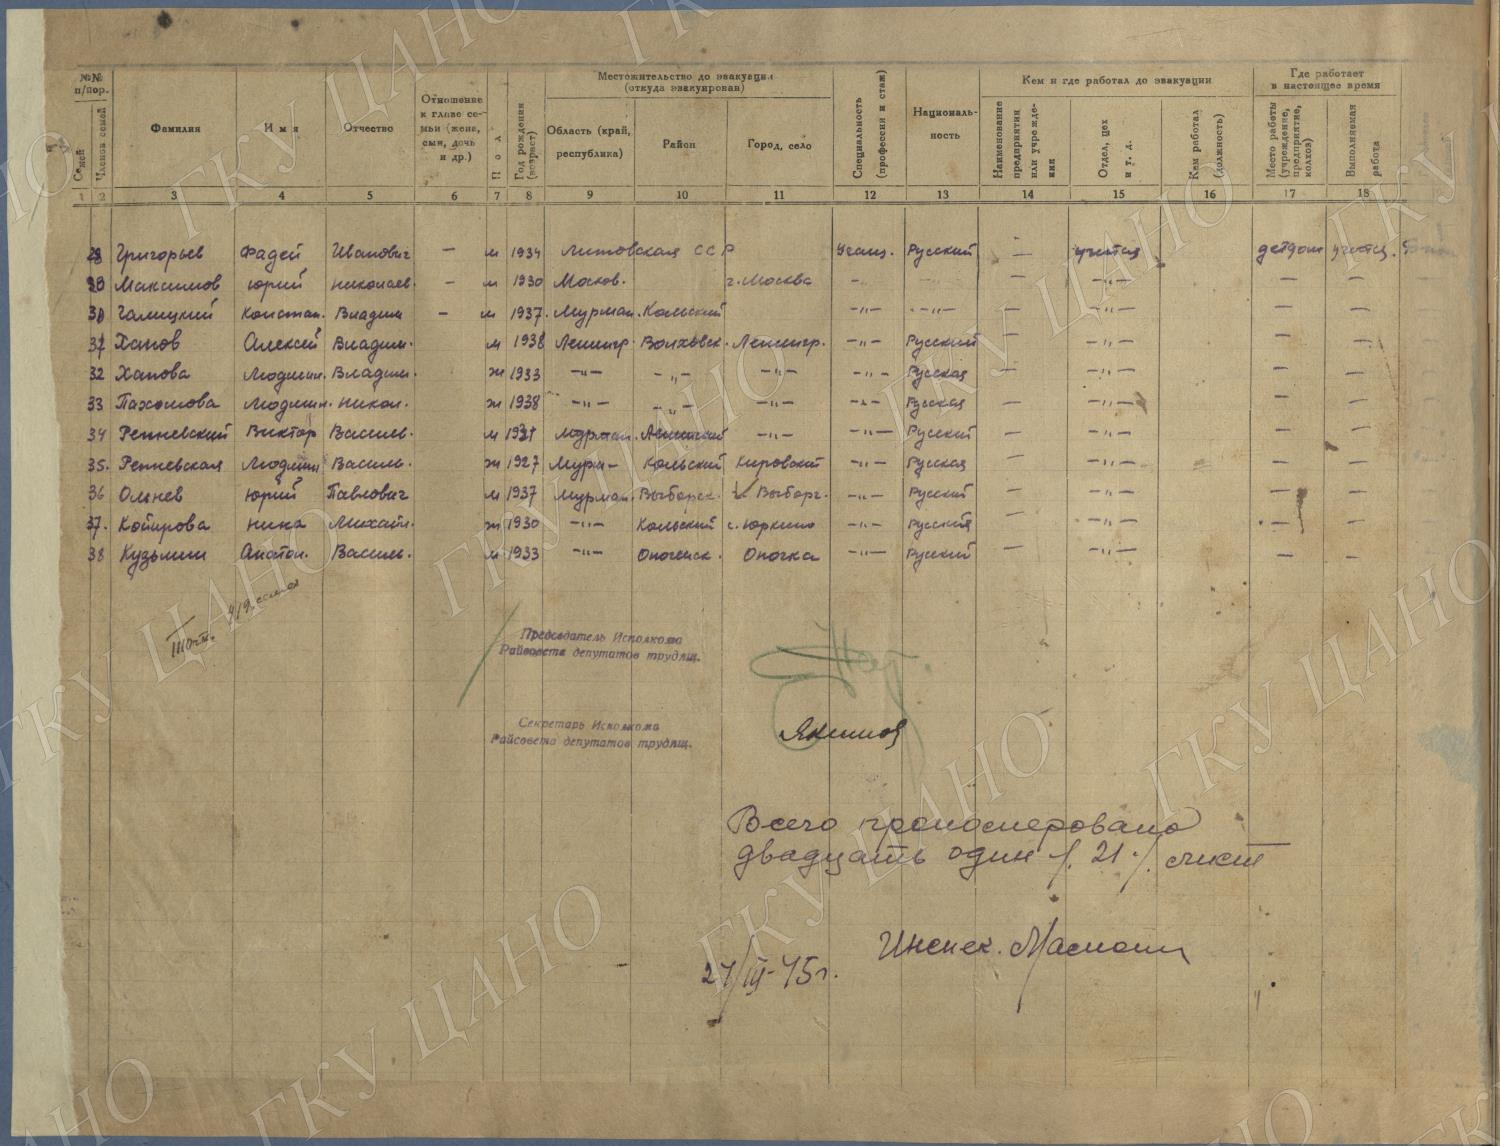 №№ п/пор.
Семей
Членов семей
Фамилия
Имя
Отчество
Отношение к главе семьи (жена, сын, дочь и др.)
Пол
Год рождения (возраст)
Местожительство до эвакуации (откуда эвакуирован)
Область (край, республика)
Район
Город, село
Специальность (профессия и стаж)
Национальность
Кем и где работал до эвакуации
Наименование предприятия или учреждения
Отдел, цех и т. д.
Кем работал (должность)
Где работает в настоящее время
Место работы (учреждение, предприятие, колхоз)
Выполняемая работа
1 2 3 4 5 6 7 8 9 10 11 12 13 14 15 16 17 18
Григорьев Фадей Иванович — м 1934 Литовская ССР Учащ. Русский — учится детдом учится.
Максимов Юрий Николаев. — м 1930 Москов. г. Москва — — —"— — —
Галицкий Констан. Владим — м 1937. Мурман. Кольский —"— —"— — —"— — —
Ханов Алексей Владим. м 1938 Ленингр. Волховск. Ленингр. —"— Русский — —"— — —
32 Ханова Людмил. Владим. ж 1933 —"— —"— —"— —"— Русская — —"— — —
33 Пахомова Людмил. Никол. ж 1938 —"— —"— —"— —"— Русская — —"— — —
34 Репневский Виктор Василь. м Мурман. —"— —"— Русский — —"— — —
35. Репневская Людмил Василь. ж 1927 Мурм— Кольский Кировский —"— Русская — —"— — —
36 Ольнев Юрий Павлович м 1937 Мурман. Выборск. Выборг. —"— Русский — —"— — —
37. Нина Михайл. ж 1930 —"— Кольский с. Юркино —"— Русская — —"— — —
38 Кузьмин Анатол. Василь. м 1933 —"— Опоченск. Опочка —"— Русский — —"— — —
Председатель Исполкома
Райсовета депутатов трудящ.
Секретарь Исполкома
Райсовета депутатов трудящ.
Якимов
Всего пронумеровано
двадцать один /. 21 ./. лист
Инспек.
ГКУ ЦАНО